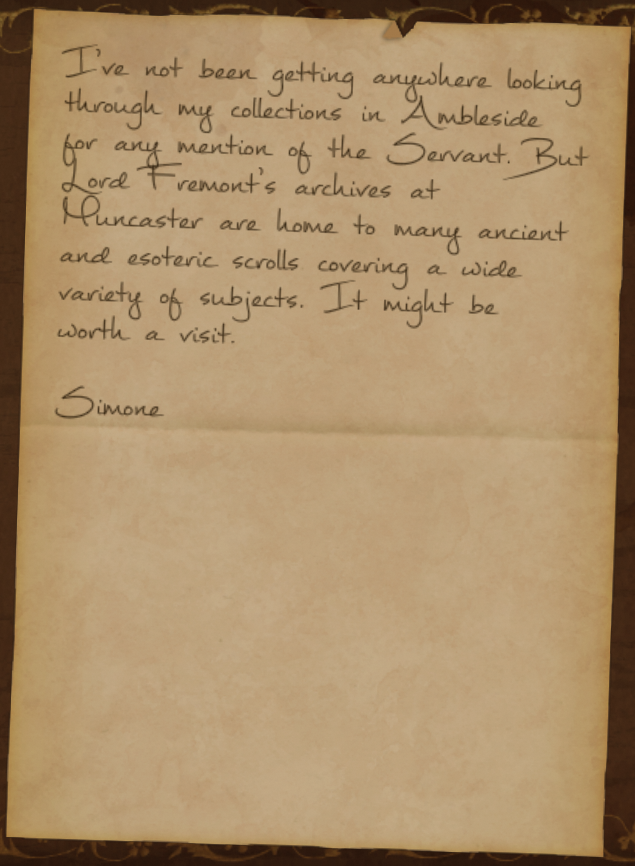 I've not been getting anywhere looking
through my collections in Ambleside
for any mention of the Servant. But
Lord Fremont's archives at
Muncaster are home to many ancient
and esoteric scrolls covering a wide
variety of subjects. It might be
worth a visit.
Simone